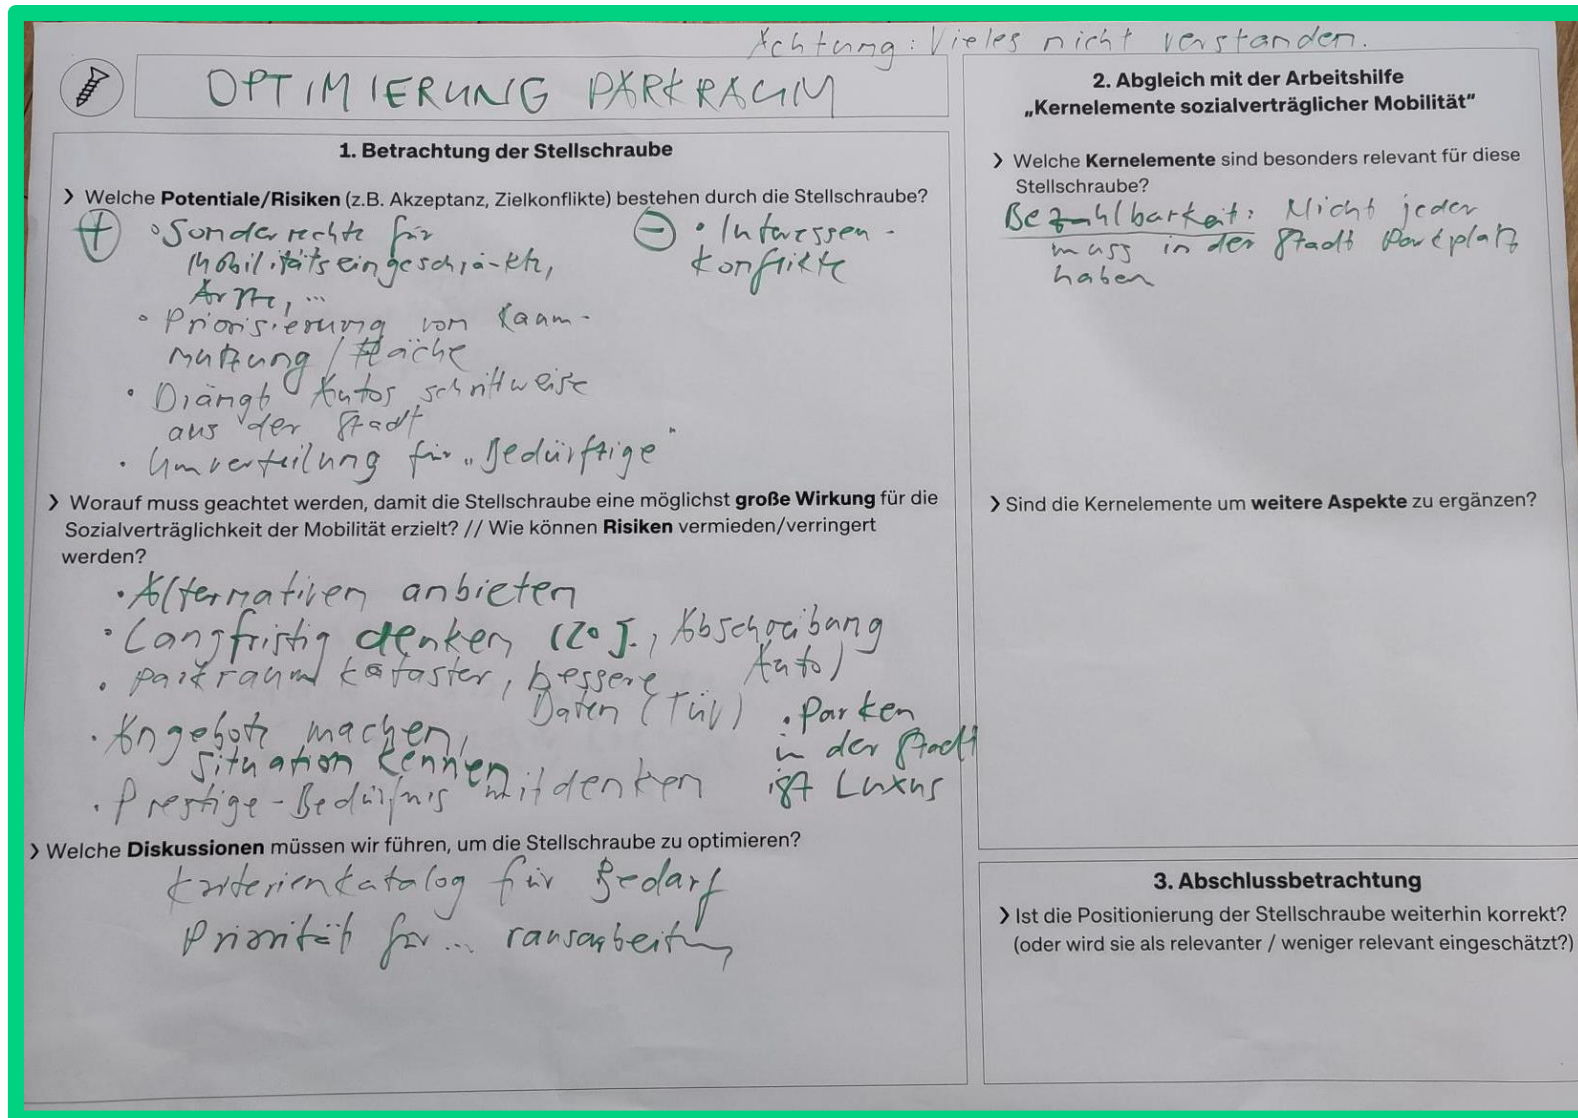 Achtung: Vieles nicht verstanden.
OPTIMIERUNG PARKRAUM
1. Betrachtung der Stellschraube
› Welche Potentiale/Risiken (z.B. Akzeptanz, Zielkonflikte) bestehen durch die Stellschraube?
+
• Sonderrechte für
Mobilitätseingeschränkte,
Ärzte, ...
• Priorisierung von Raum-
nutzung / Fläche
• Drängt Autos schrittweise
aus der Stadt
• Umverteilung für „Bedürftige"
−
• Interessen-
konflikte
› Worauf muss geachtet werden, damit die Stellschraube eine möglichst große Wirkung für die
Sozialverträglichkeit der Mobilität erzielt? // Wie können Risiken vermieden/verringert
werden?
• Alternativen anbieten
• Langfristig denken (20 J., Abschreibung
Auto)
• Parkraumkataster, bessere
Daten (TÜV)
• Angebote machen,
Situation kennen
• Prestige-Bedürfnis mitdenken
• Parken
in der Stadt
ist Luxus
› Welche Diskussionen müssen wir führen, um die Stellschraube zu optimieren?
Kriterienkatalog für Bedarf
Priorität für ... rausarbeiten
2. Abgleich mit der Arbeitshilfe
„Kernelemente sozialverträglicher Mobilität"
› Welche Kernelemente sind besonders relevant für diese
Stellschraube?
Bezahlbarkeit: Nicht jeder
muss in der Stadt Parkplatz
haben
› Sind die Kernelemente um weitere Aspekte zu ergänzen?
3. Abschlussbetrachtung
› Ist die Positionierung der Stellschraube weiterhin korrekt?
(oder wird sie als relevanter / weniger relevant eingeschätzt?)